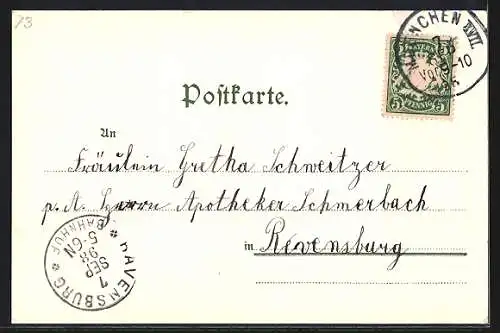 73
MÜNCHEN XVII.
BAYERN
5 5
PFENNIG
Postkarte.
An
Fräulein Gretha Schweitzer
p. A. Herrn Apotheker Schmerbach
in Revensburg
* RAVENSBURG *
BAHNHOF
7
SEP
98
5-6N